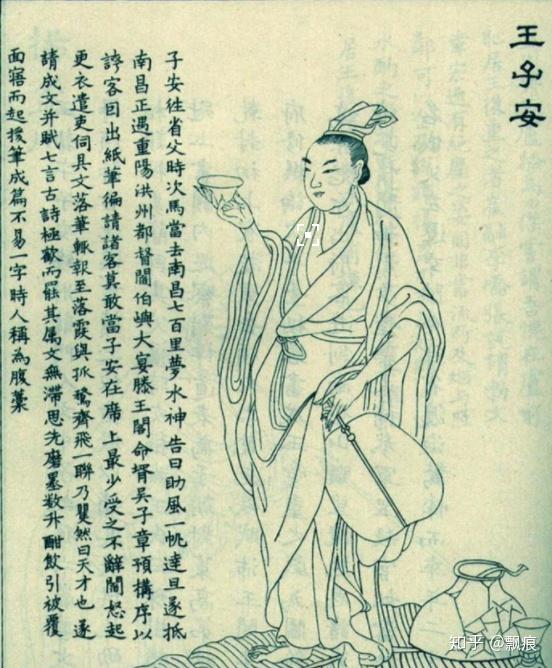 王子安
子安往省父時次馬當去南昌七百里夢水神告曰助風一帆達旦遂抵
南昌正遇重陽洪州都督閻伯嶼大宴滕王閣命壻吳子章預構序以
誇客因出紙筆徧請諸客莫敢當子安在席上最少受之不辭閻怒起
更衣遣吏伺具文落筆輒報至落霞與孤鶩齊飛一聯乃矍然曰天才也遂
請成文并賦七言古詩極歡而罷其属文無滯思先磨墨数升酣飲引被覆
面寤而起援筆成篇不易一字時人稱為腹藁
知乎 @飘痕